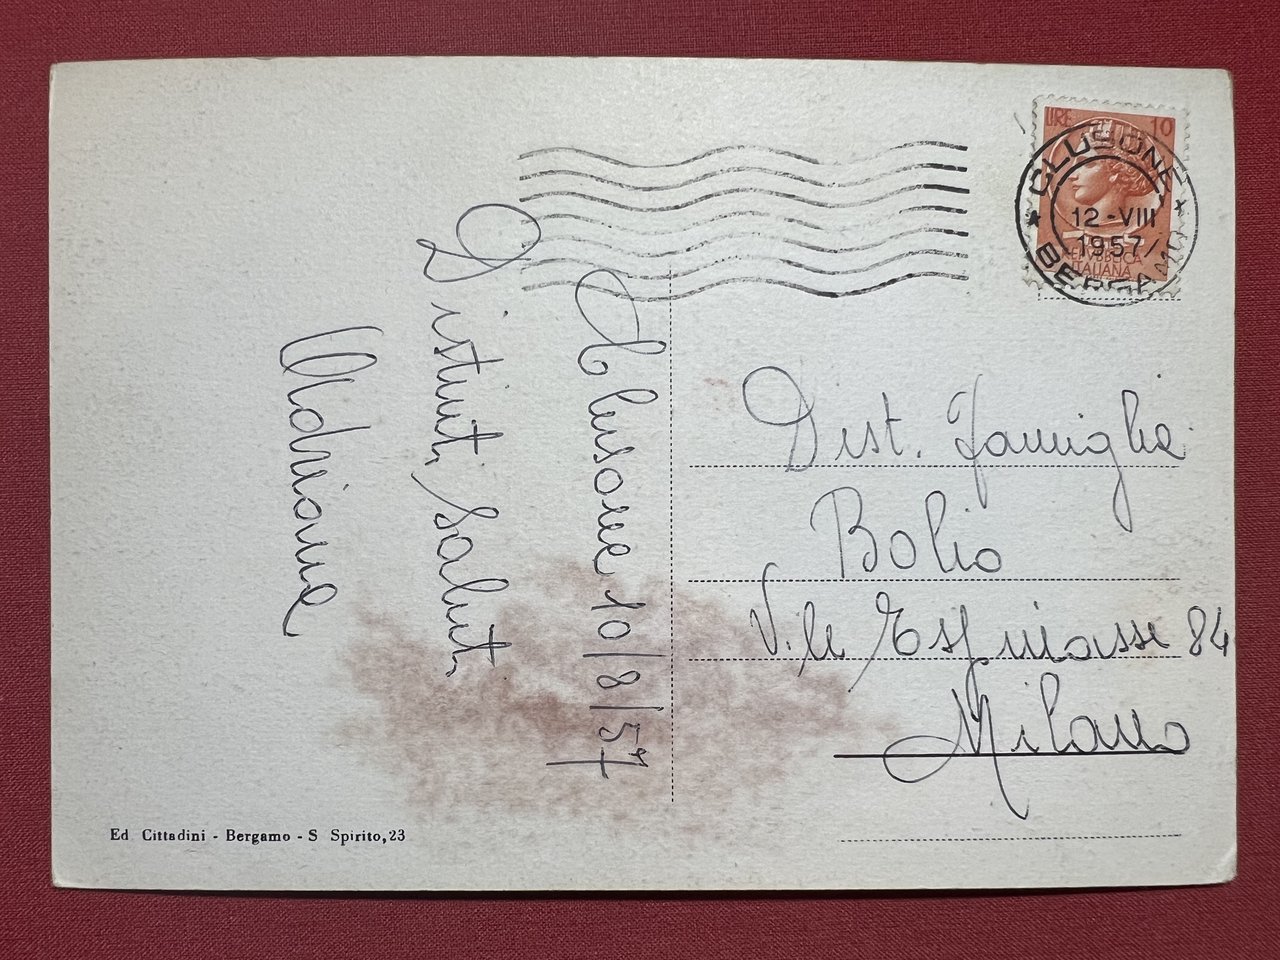 LIRE 10
REPVBBLICA
ITALIANA
CLUSONE
12-VIII
1957
BERGAMO
Clusone 10/8/57
Distinti Saluti
Adriana
Dist. Famiglia
Bolio
V.le Espinasse 84
Milano
Ed Cittadini - Bergamo - S Spirito, 23